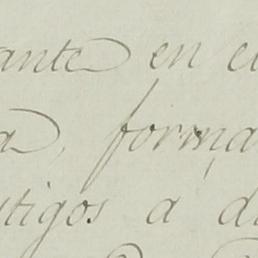 ante en e
a, forma
stigos a d